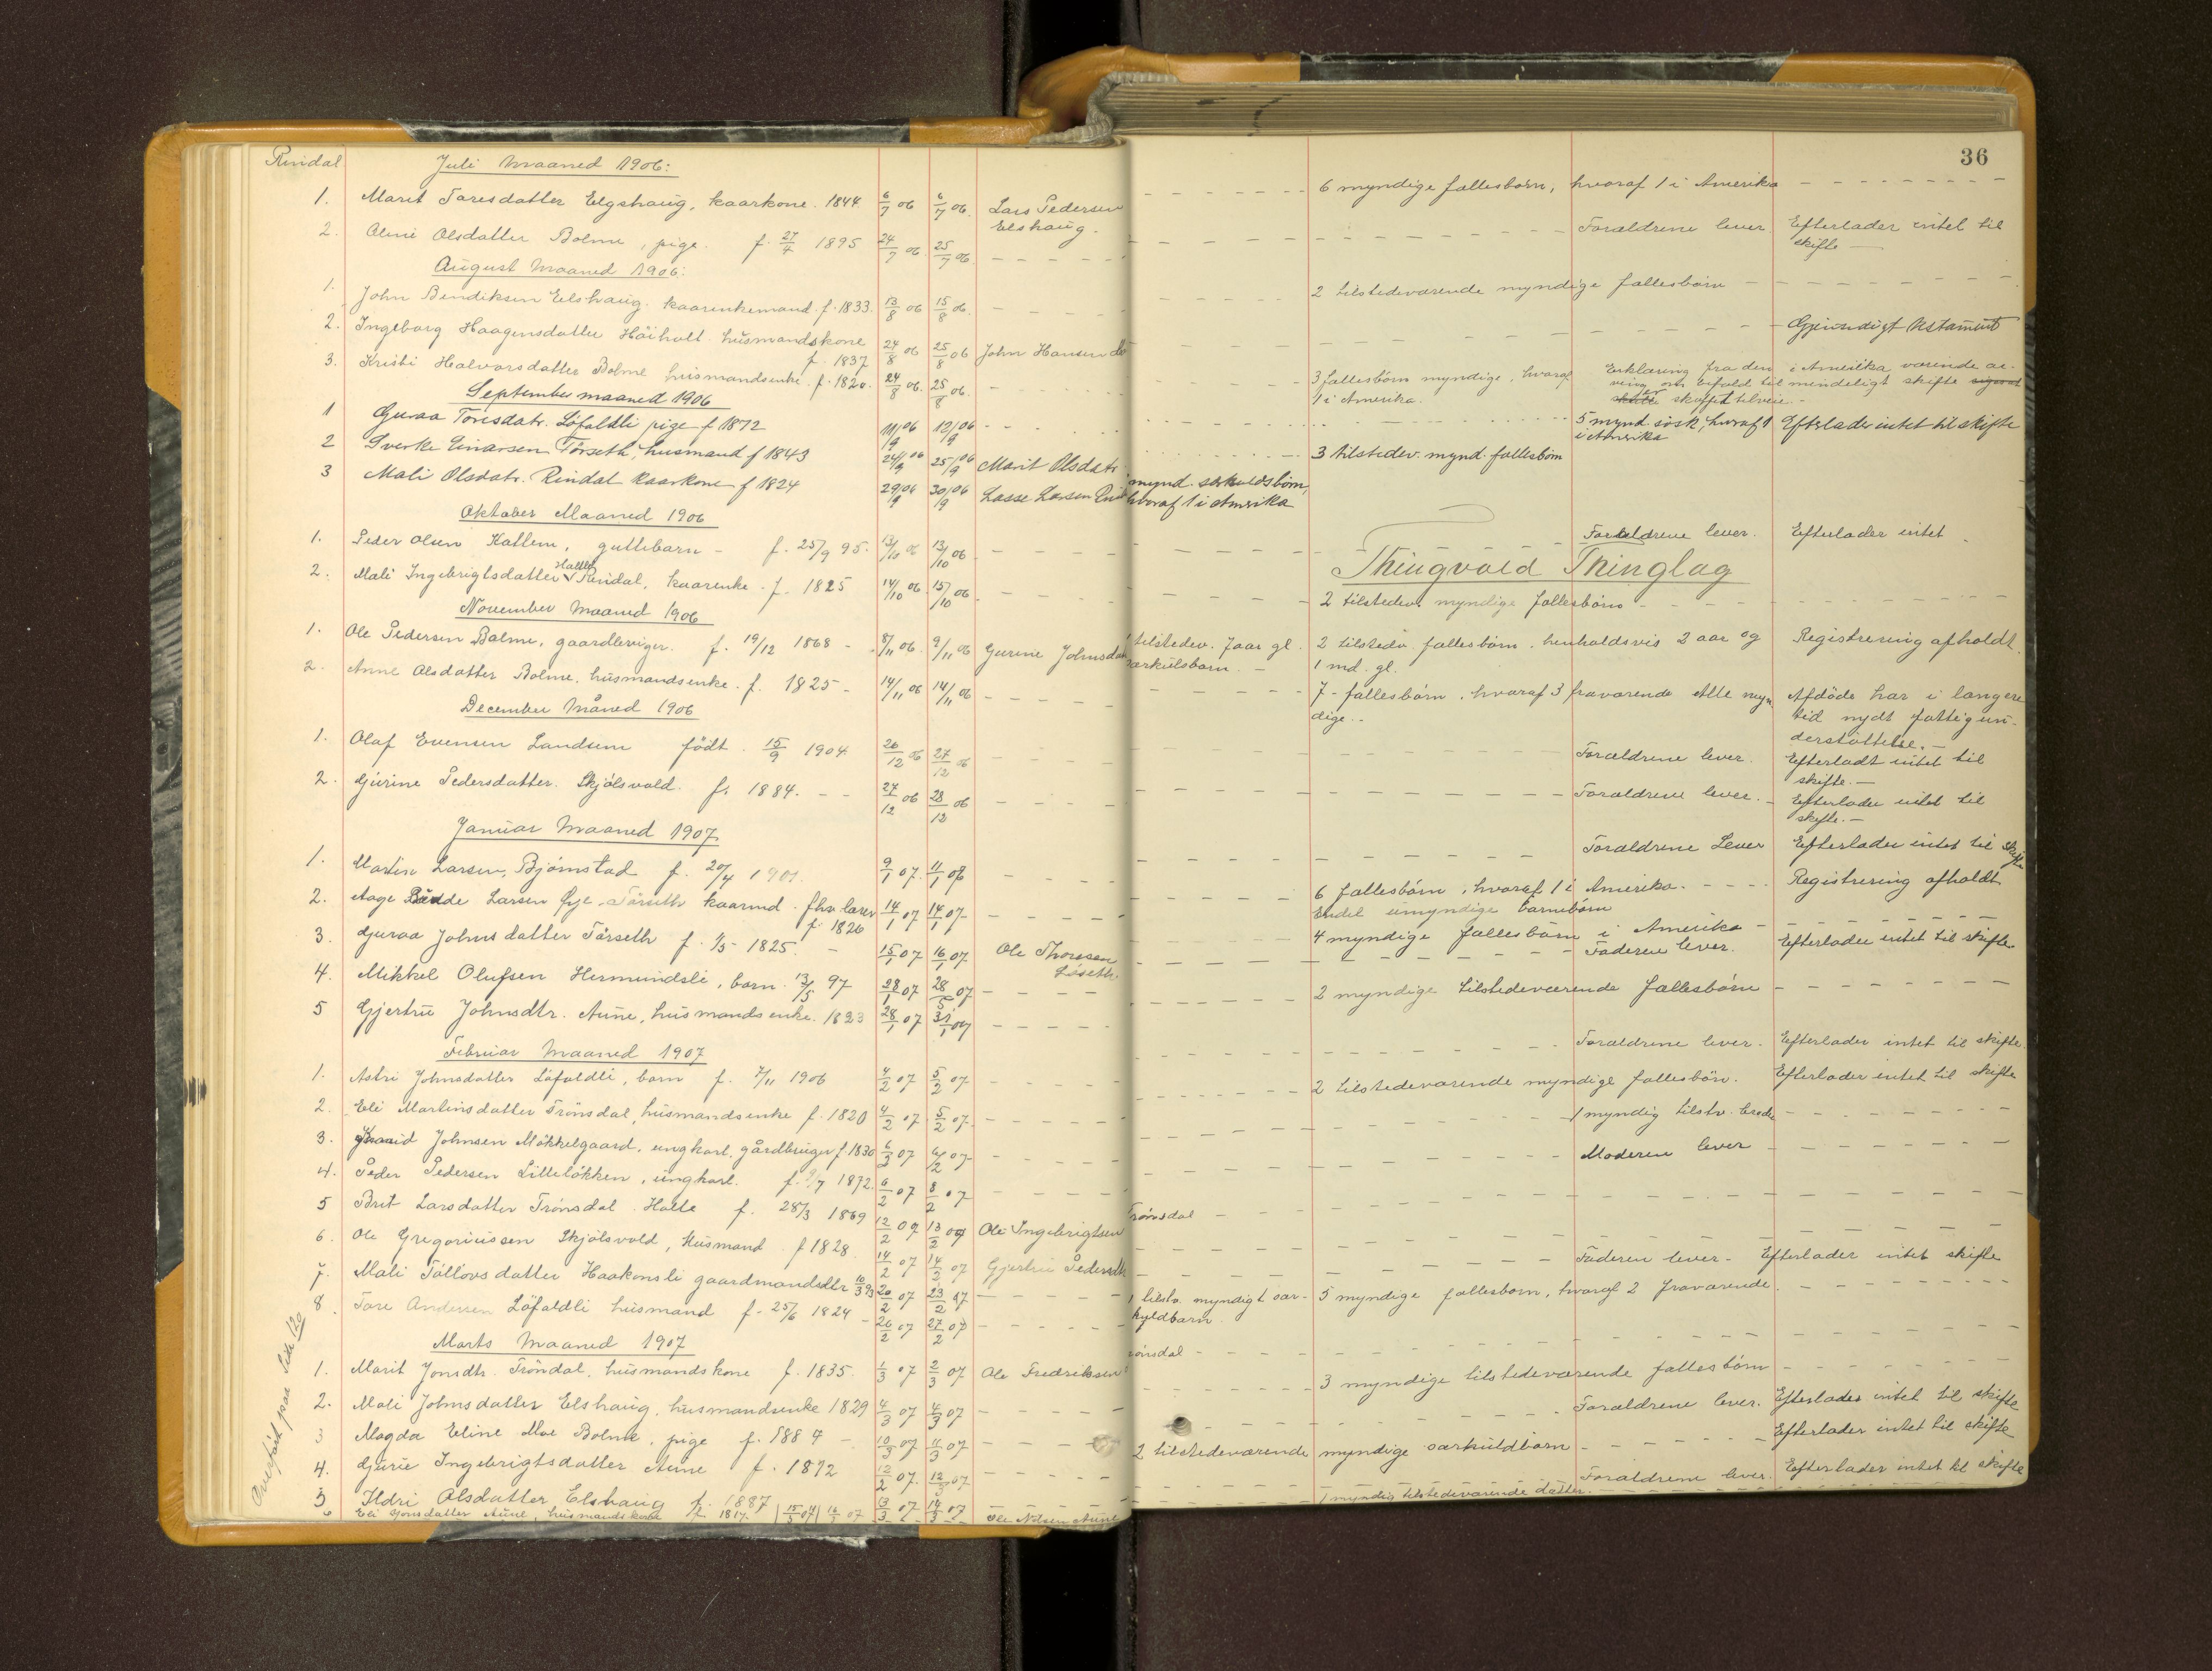 Rindal
Juli Maaned 1906:
1. Marit Toresdatter Elgshaug, kaarkone. 1844 6/7 06 6/7 06. Lars Pedersen Elshaug. 6 myndige fællesbørn, hvoraf 1 i Amerika
2. Olsdatter Bolme, pige. f. 27/4 1895 24/7 06 25/7 06. Forældrene lever. Efterlader intet til skifte
August Maaned 1906.
1. John Bendiksen Elshaug. kaarenkemand. f. 1833. 13/8 06 15/8 06. 2 tilstedeværende myndige fællesbørn
2. Ingeborg Haagensdatter Höiholt. husmandskone f. 1837 24/8 06 25/8 06 John Hansen Gjensidigt testament
3. Kristi Halvorsdatter Bolme husmandsenke. f. 1820. 24/8 06. 25/8 06. 3 fællesbørn myndige, hvoraf 1 i Amerika. Erklæring fra den i Amerika værende arving om bifald til mindeligt skifte skaffet tilveie.
September maaned 1906
1 Guraa Toresdatr. Löfaldli pige f 1872 11/9 06 12/9 06 5 mynd. søsk, hvoraf 1 i Amerika Efterlader intet til skifte
2 Sverke Einarsen Törseth, husmand f 1843 24/9 06 25/9 06 Marit Olsdatr. 3 tilstedev. mynd. fællesbörn
3 Mali Olsdatr. Rindal kaarkone f 1824 29/9 06 30/9 06 Lasse Larsen mynd. særkuldsbörn, hvoraf 1 i Amerika
Oktober Maaned 1906
1. Peder Olsen Kattem, guttebarn - f. 25/9 95. 13/10 06 13/10 06 Forældrene lever. Efterlader intet
Thingvold Thinglag
2. Mali Ingebrigtsdatter Rindal, kaarenke. f. 1825 14/10 06 15/10 06 2 tilstedev. myndige fællesbörn
November Maaned 1906
1. Ole Pedersen Bolme, gaardbruger. f. 19/12 1868 - 8/11 06. 9/11 06 Gurine Johnsdat tilstedev. 7 aar gl. særkulsbarn. 2 tilstedv. fællesbörn. henholdsvis 2 aar og 1 md. gl. Registrering afholdt.
2. Anne Olsdatter Bolme. husmandsenke. f. 1825 - 14/11 06 14/11 06 7 - fællesbörn, hvoraf 3 fraværende Alle myndige. Afdöde har i længere tid nydt fattigunderstöttelse.
December Måned 1906
1. Olaf Evensen Landsem födt. 15/9 1904 26/12 06 27/12 06 Forældrene lever. Efterladt intet til skifte.
2. Gurine Pedersdatter. Skjölsvold. f. 1884. 27/12 06 28/12 06 Forældrene lever. Efterlader intet til skifte.
Januar Maaned 1907.
1. Martin Larsen Bjørnstad f. 20/4 1901. 9/1 07. 11/1 07 Forældrene Lever Efterlader intet til skifte
2. Aage Larsen Øye Törseth kaarmd. fhv. lærer f. 1826 14/1 07 17/1 07 6 fællesbörn, hvoraf 1 i Amerika. Endel umyndige barnebörn Registrering afholdt
3. Guraa Johnsdatter Törseth f. 1/5 1825. 15/1 07 16/1 07. Ole Thoresen Löseth. 4 myndige fællesbörn i Amerika
4. Mikkel Olufsen Hermundsli, barn 13/5 97 28/1 07 28/5 07 Faderen lever. Efterlader intet til skifte
5 Gjertru Johnsdtr. Aune, husmandsenke. 1823 28/1 07 31/1 07 2 myndige tilstedeværende fællesbörn
Februar Maaned 1907
1. Astri Johnsdatter Löfaldli, barn f. 7/11 1906 4/2 07 5/2 07 Forældrene lever. Efterlader intet til skifte
2. Eli Martinsdatter Trönsdal, husmandsenke f. 1820 4/2 07. 5/2 07. 2 tilstedeværende myndige fællesbön. Efterlader intet til skifte
3. Johnsen Mökkelgaard, ungkarl. gårdbruger f. 1830 6/2 07 6/2 07 1 myndig tilstv. broder
4. Peder Pedersen Lillelökken, ungkarl. f. 9/7 1872. 6/2 07 8/2 07 Moderen lever
5 Brit Larsdatter Trönsdal Halle f. 28/3 1869 12/2 07 13/2 07 Ole Ingebrigtsen Trönsdal
6. Ole Gregoriussen Skjölsvold, Husmand f 1828. 14/2 07 14/2 07 Gjertru Pedersdtr
7. Mali Töllövsdatter Haakonsli gaardmandsdtr 20/2 07 23/2 07 Faderen lever. Efterlader intet skifte
8. Tore Andersen Löfaldli husmand f. 25/6 1824 26/2 07 27/2 07 1 tilstv. myndigt særkuldbarn. 5 myndige fællesbörn, hvoraf 2 fraværende.
Marts Maaned 1907
1. Marit Jonsdtr. Tröndal, husmandskone f. 1835. 1/3 07 2/3 07 Ole Fredriksen
2. Mali Johnsdatter Elshaug, husmandsenke 1829 4/3 07 4/3 07 3 myndige tilstedeværende fællesbörn
3 Magda Eline Moe Bolme, pige f. 1887 10/3 07 11/3 07 Forældrene lever. Efterlader intet til skifte
4. Gurie Ingebrigtsdatter Aune f. 1872 12/2 07. 12/3 07 2 tilstedeværende myndige særkuldbörn Efterlader intet til skifte
5 Ildri Olsdatter Elshaug f. 1887 13/3 07 14/3 07 Forældrene lever. Efterlader intet til skifte
6 Eli Jonsdatter Aune, husmandskone f. 1817. 15/3 07 16/3 07 Ole Nilsen Aune 1 myndig tilstedeværende datter.
Overført paa Side 120
36